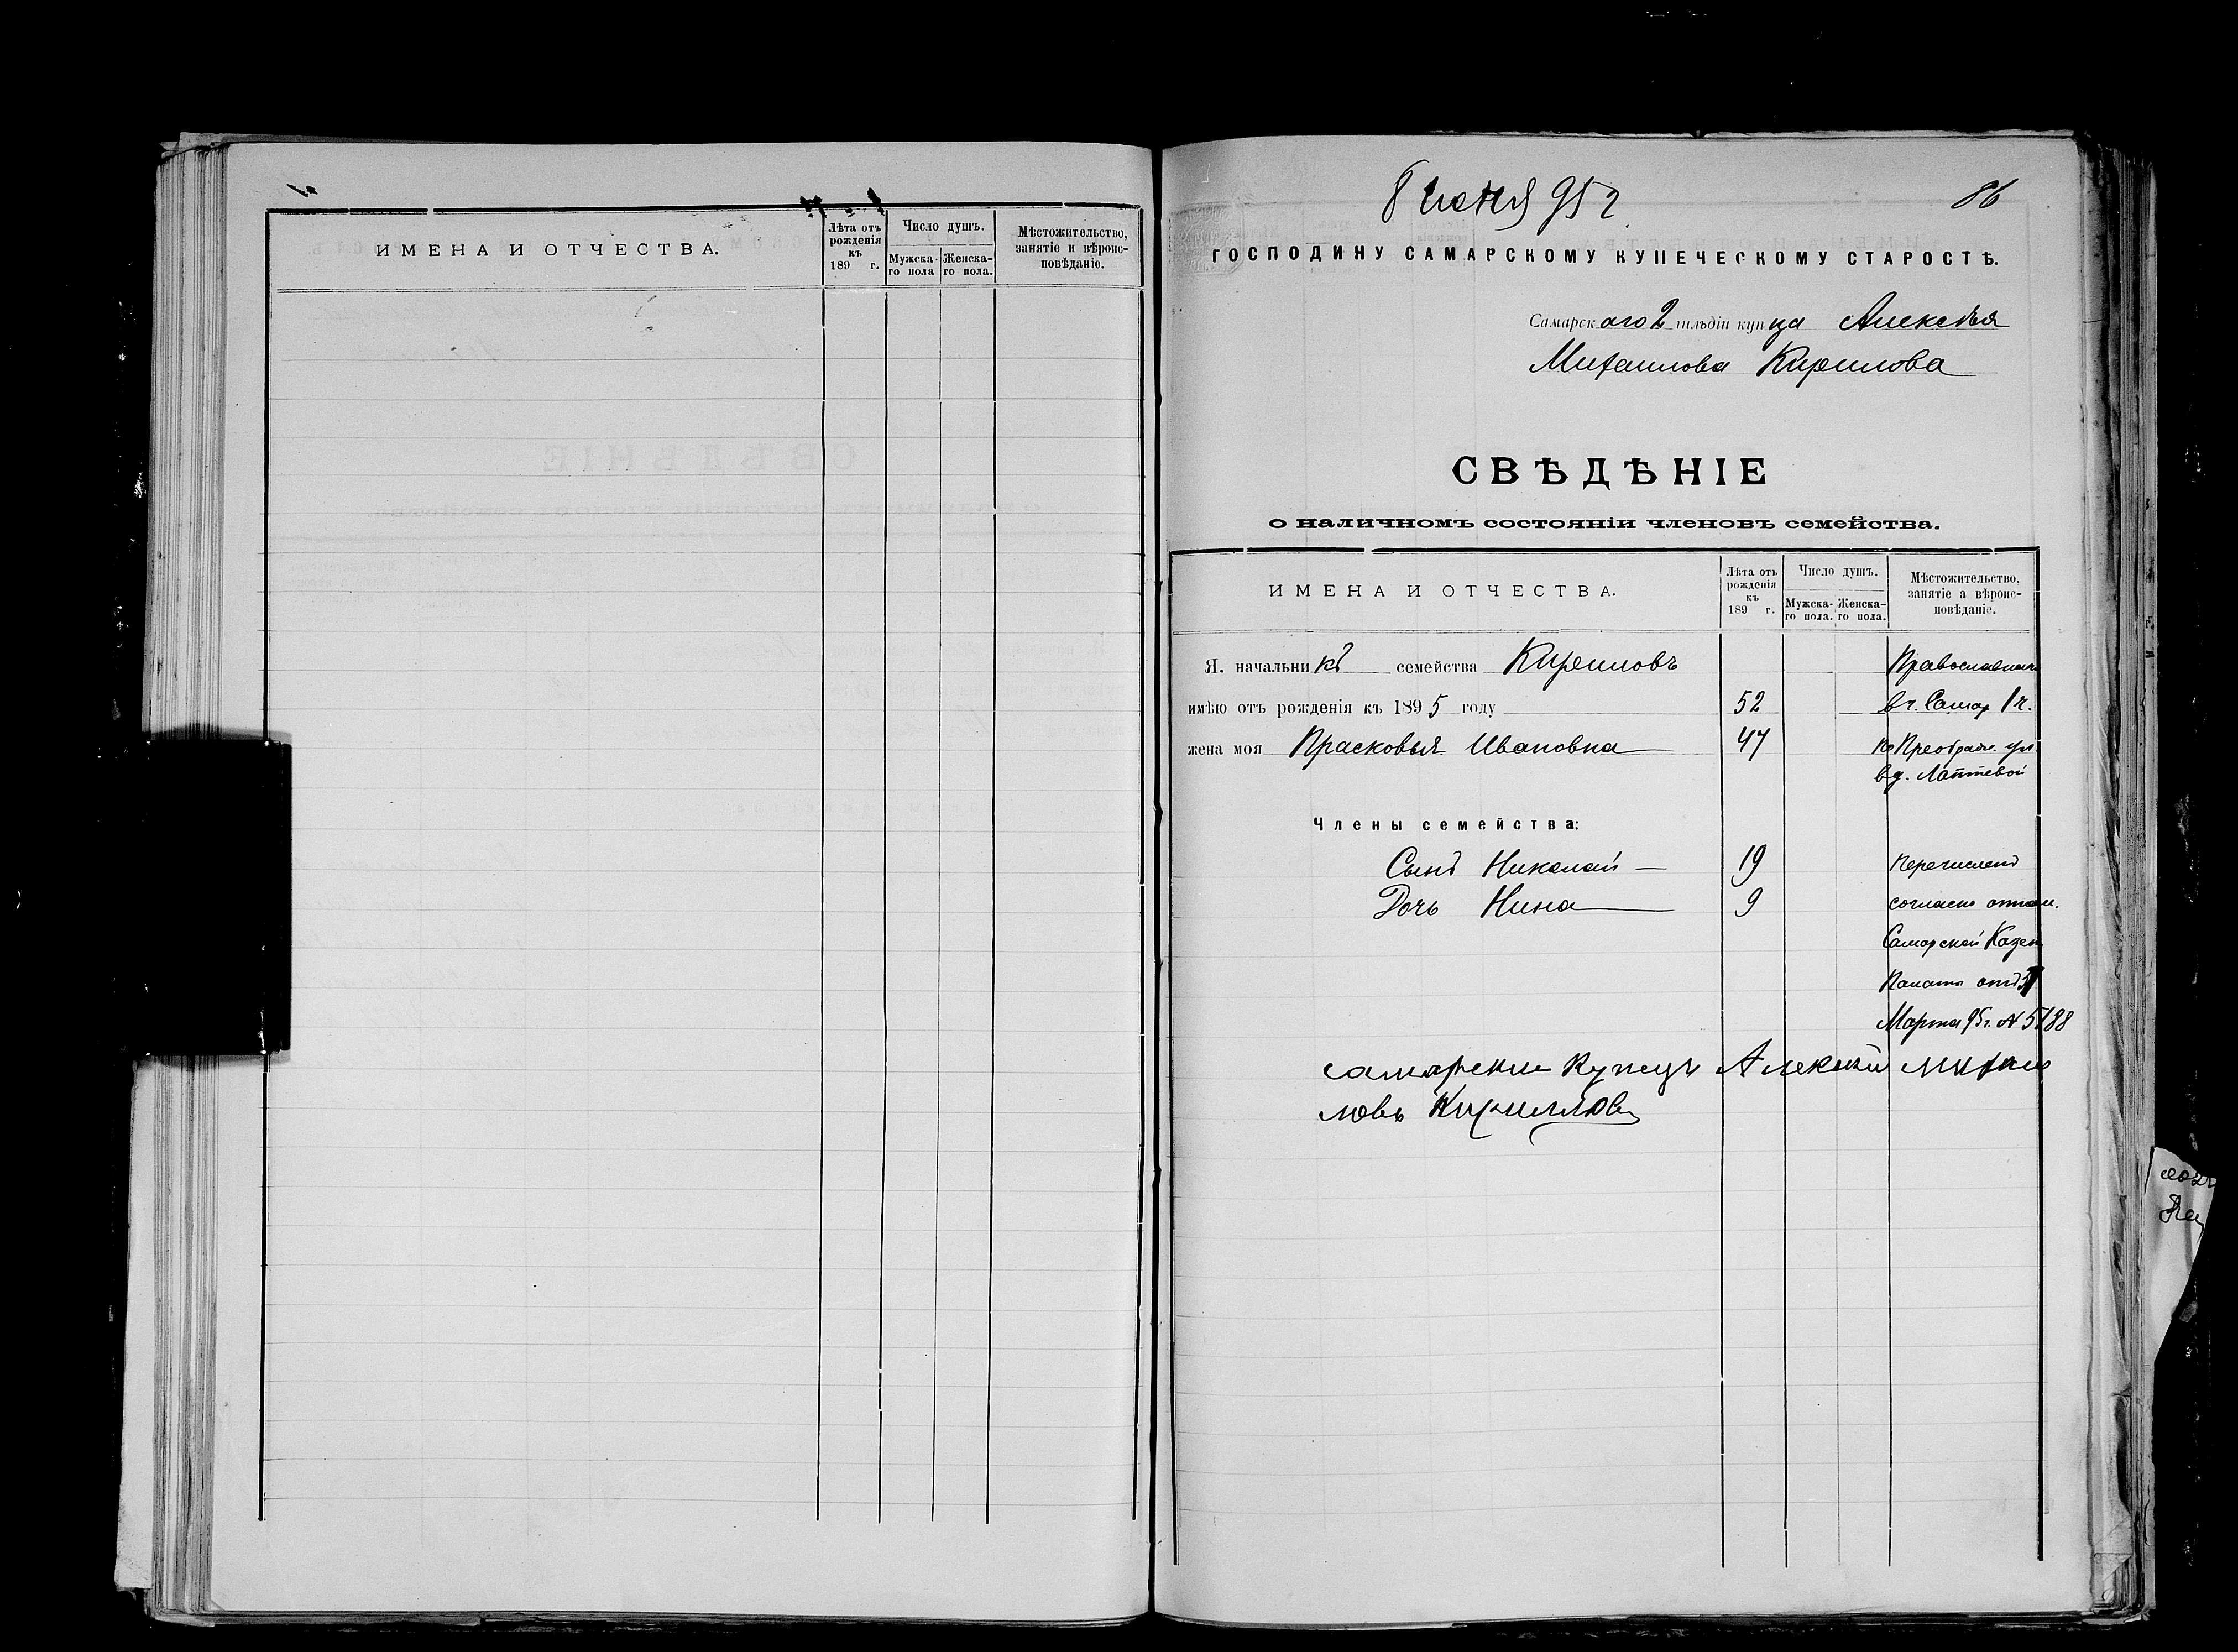 ИМЕНА И ОТЧЕСТВА.
Лѣта отъ рожденія къ 189 г.
Число душъ.
Мужска-го пола
Женска-го пола.
Мѣстожительство, занятіе и вѣроис-повѣданіе.
8 июня 95 г.
86
ГОСПОДИНУ САМАРСКОМУ КУПЕЧЕСКОМУ СТАРОСТѢ.
Самарскаго 2 гильдіи купца Алексѣя
Михаилова Кирилова
СВѢДѢНІЕ
о наличномъ состояніи членовъ семейства.
ИМЕНА И ОТЧЕСТВА.
Лѣта отъ рожденія къ 189 г.
Число душъ.
Мужска-го пола.
Женска-го пола.
Мѣстожительство, занятіе а вѣроис-повѣданіе.
Я. начальникъ семейства Кириловъ Православнаго
имѣю отъ рожденія къ 1895 году 52 в г. Самар 1 ч.
жена моя Прасковья Ивановна 47 по Преображ. ул.
в д. Лаптевой
Члены семейства:
Сынъ Николай — 19 перечисленъ
Дочь Нина 9 согласно отнош.
Самарской Казен
Палаты отъ
Марта 95 г. №
самарски купецъ Алексѣй михаи
ловъ Кириллов